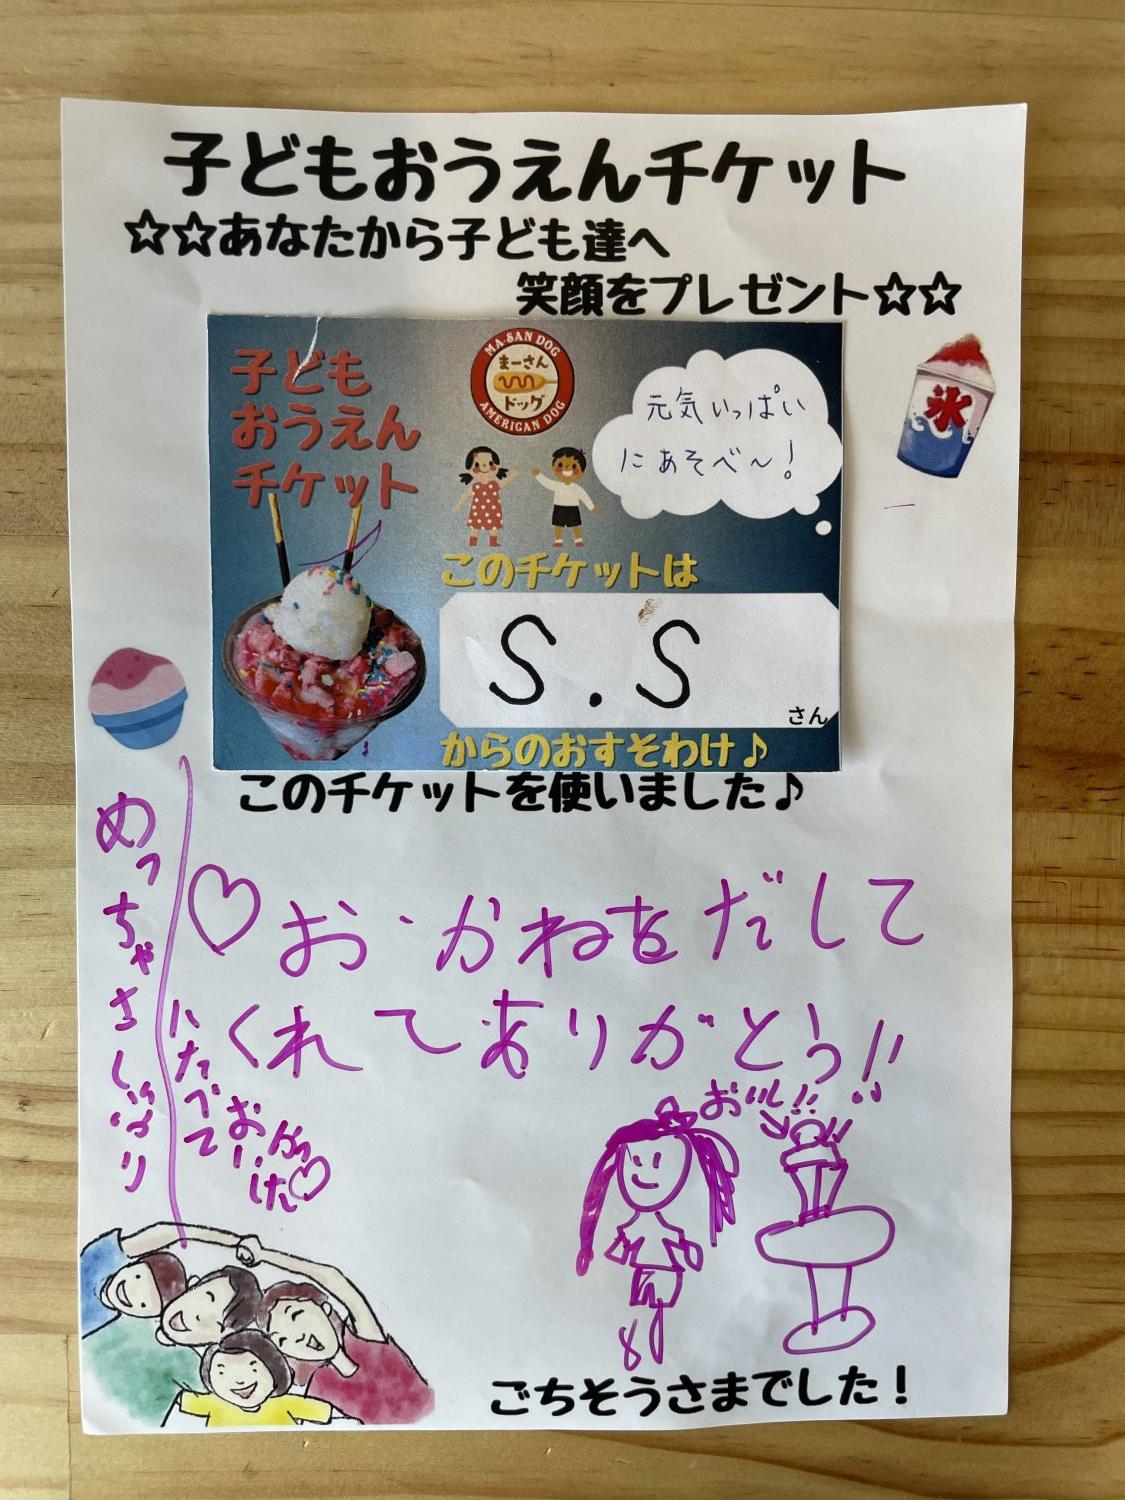 子どもおうえんチケット
☆☆あなたから子ども達へ
笑顔をプレゼント☆☆
子ども
おうえん
チケット
MA-SAN DOG
まーさん
ドッグ
AMERICAN DOG
元気いっぱい
にあそべ〜!
氷
このチケットは
S.S
さん
からのおすそわけ♪
このチケットを使いました♪
♡おかねをだして
くれてありがとう!!
めっちゃさ
にたべて
おいし!!
ごちそうさまでした!